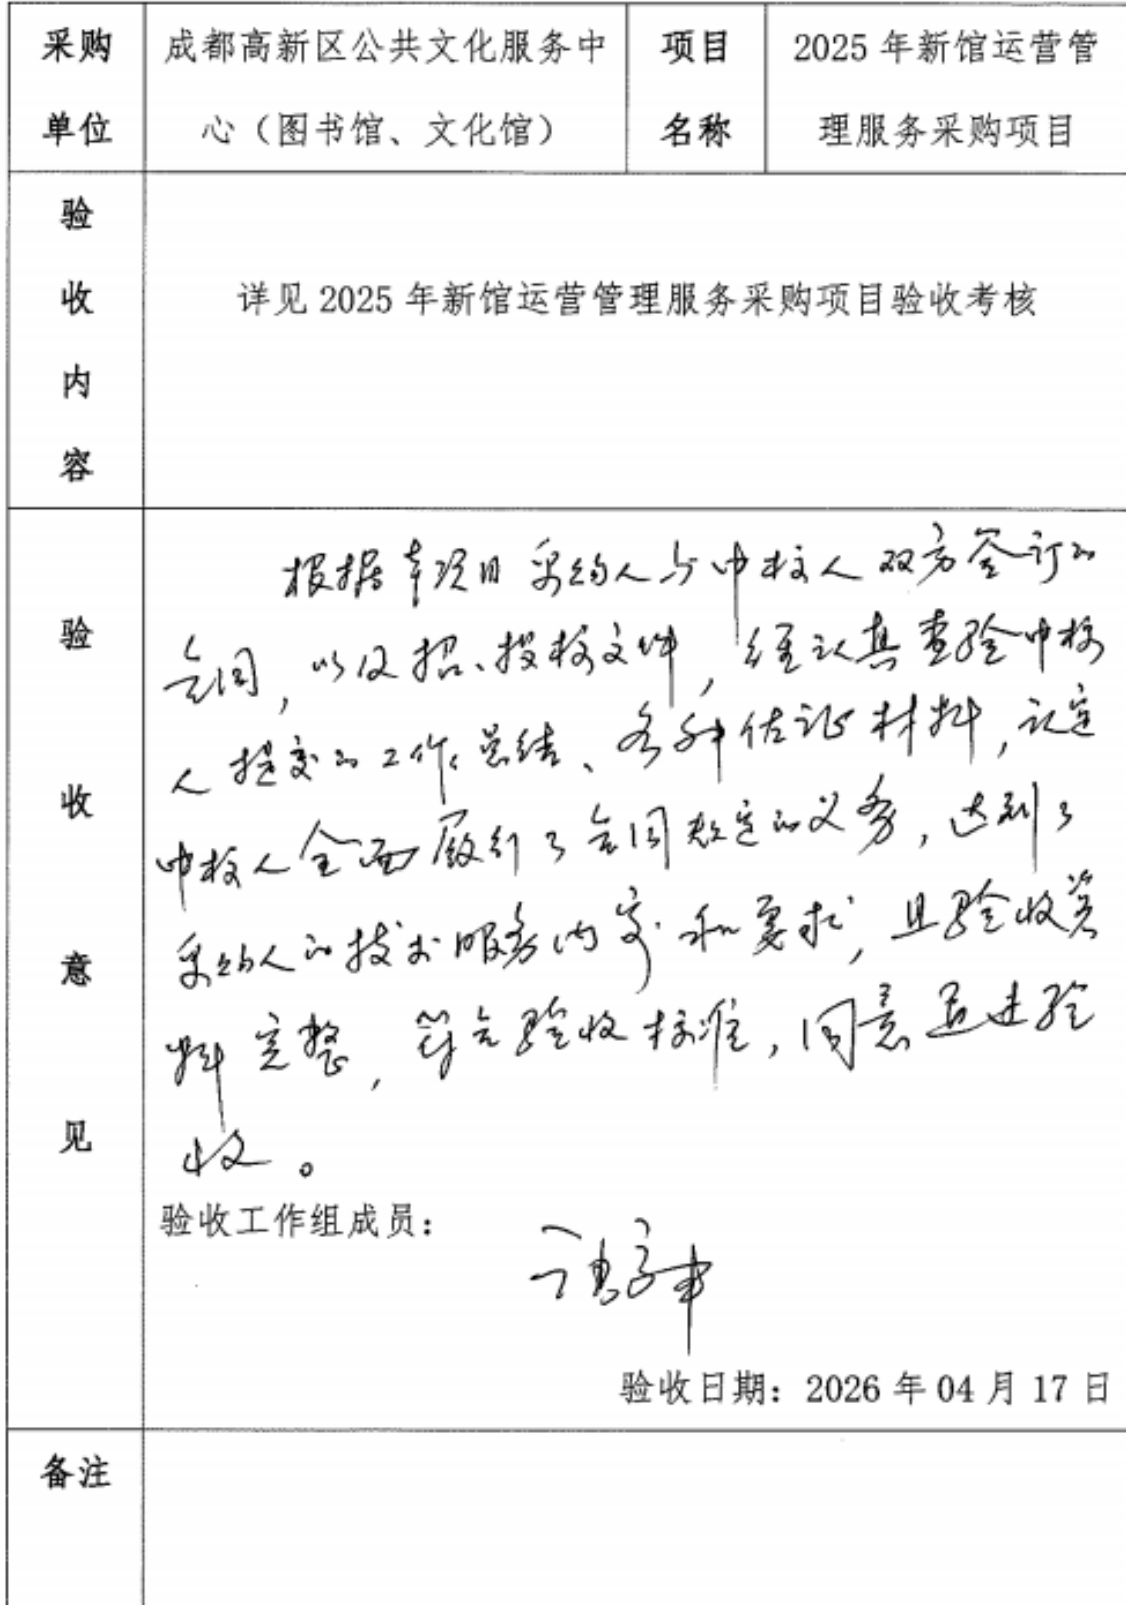 采购 成都高新区公共文化服务中 项目 2025 年新馆运营管
单位 心（图书馆、文化馆） 名称 理服务采购项目
验
收 详见 2025 年新馆运营管理服务采购项目验收考核
内
容
根据本项目采购人与中标人双方签订的
验 合同，以及招、投标文件，经认真查验中标
人提交的工作总结、各种佐证材料，认定
收 中标人全面履行了合同规定的义务，达到了
意 采购人的技术服务内容和要求，且验收资
料完整，符合验收标准，同意通过验
见 收。
验收工作组成员：
验收日期：2026 年 04 月 17 日
备注